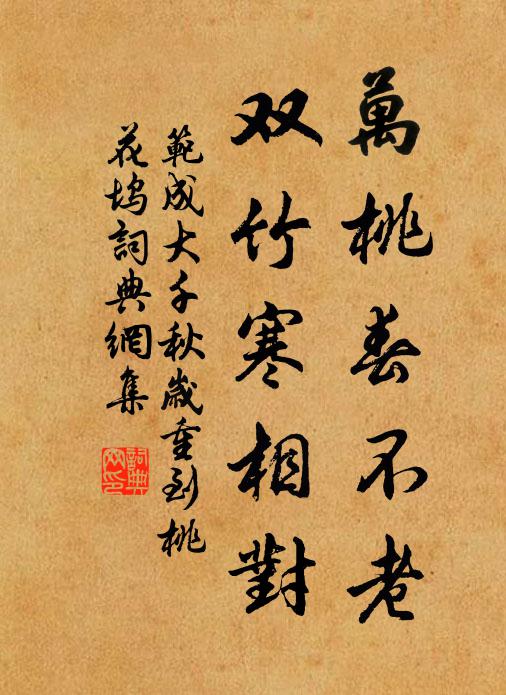 萬桃春不老
双竹寒相對
範成大千秋歲重到桃
花塢詞典網集
詞典網印